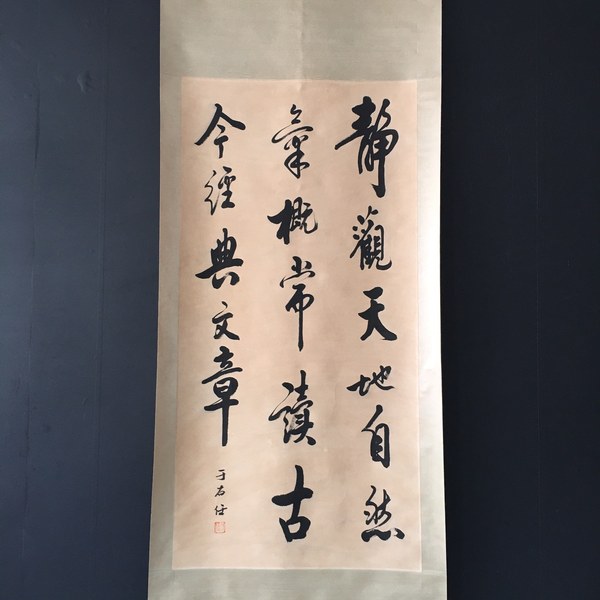 靜觀天地自然
氣概常讀古
今經典文章
于右任